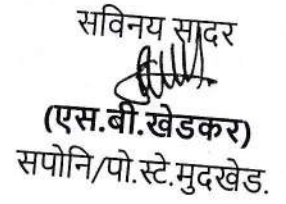 सविनय सादर
(एस.बी.खेडकर)
सपोनि/पो.स्टे.मुदखेड.